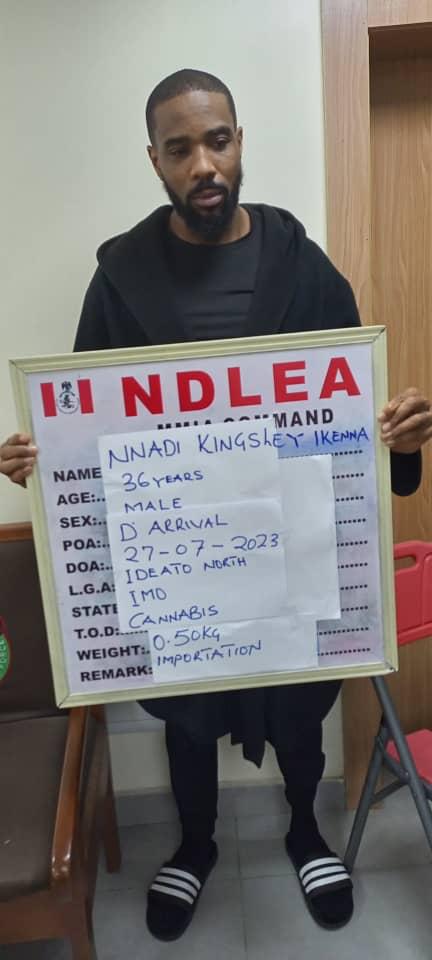 NDLEA
MMIA COMMAND
NAME NNADI KINGSLEY IKENNA
AGE:.. 36 YEARS
SEX:.. MALE
POA: D' ARRIVAL
DOA: 27-07-2023
L.G.A: IDEATO NORTH
STATE IMO
T.O.D: CANNABIS
WEIGHT: 0.50KG
REMARK: IMPORTATION